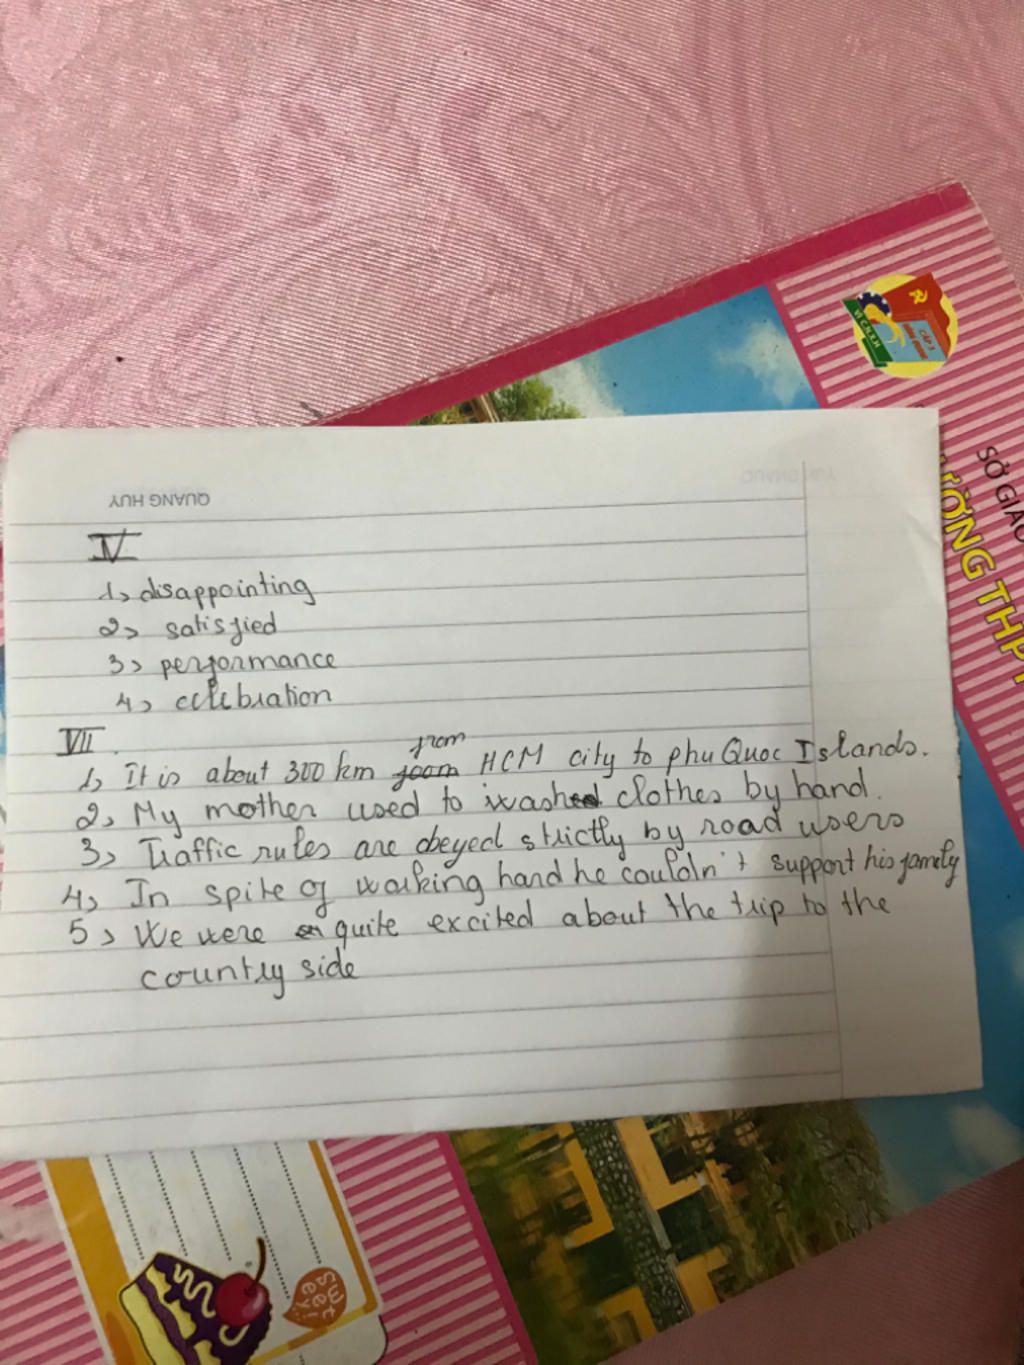 VÌ C.N.X.H
CẤP 3
SỞ GIÁO
ƯỜNG THPT
QUANG HUY
IV
1, disappointing
2, satisfied
3, performance
4, celebration
VII.
from
1, It is about 300 km HCM city to phu Quoc Islands.
2, My mother used to wash clothes by hand.
3, Traffic rules are obeyed strictly by road users
4, In spite of working hard he couldn't support his family
5, We were quite excited about the trip to the
country side